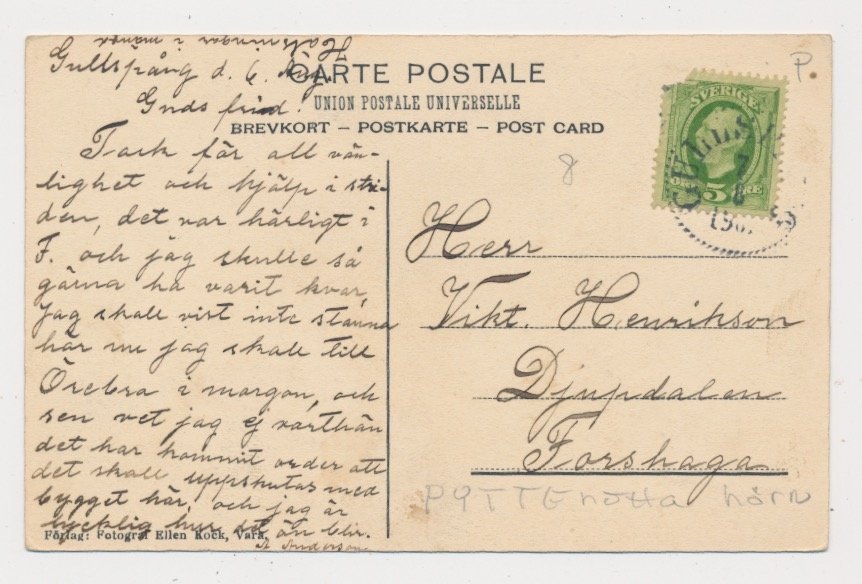 Gullspång d. 6. Aug.
Guds frid!
CARTE POSTALE
UNION POSTALE UNIVERSELLE
BREVKORT – POSTKARTE – POST CARD
P.
8
SVERIGE
5 ÖRE
GULLSP
Tack för all vän-
lighet och hjälp i stri-
den, det var härligt i
F. och jag skulle så
gärna ha varit kvar,
jag skall vist inte stanna
här nu jag skall till
Örebro i morgon, och
sen vet jag ej varthän
det har kommit order att
det skall uppskutas med
bygget här, och jag är
lycklig hur det än blir.
A. Anderson
Herr
Vikt. Henrikson
Djupdalen
Forshaga
hörn
Förlag: Fotograf Ellen Kock, Vara.
Hälsningar i mängd